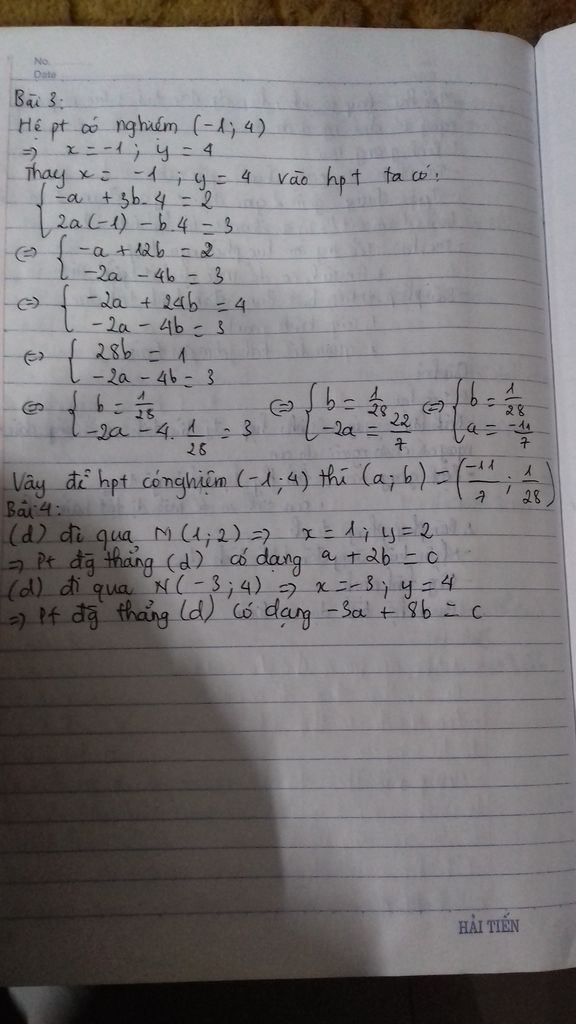 No.
Date
Bài 3:
Hệ pt có nghiệm (-1; 4)
=> x = -1 ; y = 4
Thay x = -1 ; y = 4 vào hpt ta có:
{ -a + 3b.4 = 2
2a(-1) - b.4 = 3
<=> { -a + 12b = 2
-2a - 4b = 3
<=> { -2a + 24b = 4
-2a - 4b = 3
<=> { 28b = 1
-2a - 4b = 3
<=> { b = 1/28
-2a - 4. 1/28 = 3
<=> { b = 1/28
-2a = 22/7
<=> { b = 1/28
a = -11/7
Vậy để hpt có nghiệm (-1; 4) thì (a; b) = (-11/7 ; 1/28)
Bài 4:
(d) đi qua M(1; 2) => x = 1; y = 2
=> Pt đg thẳng (d) có dạng a + 2b = c
(d) đi qua N(-3; 4) => x = -3; y = 4
=> Pt đg thẳng (d) có dạng -3a + 8b = c
HẢI TIẾN